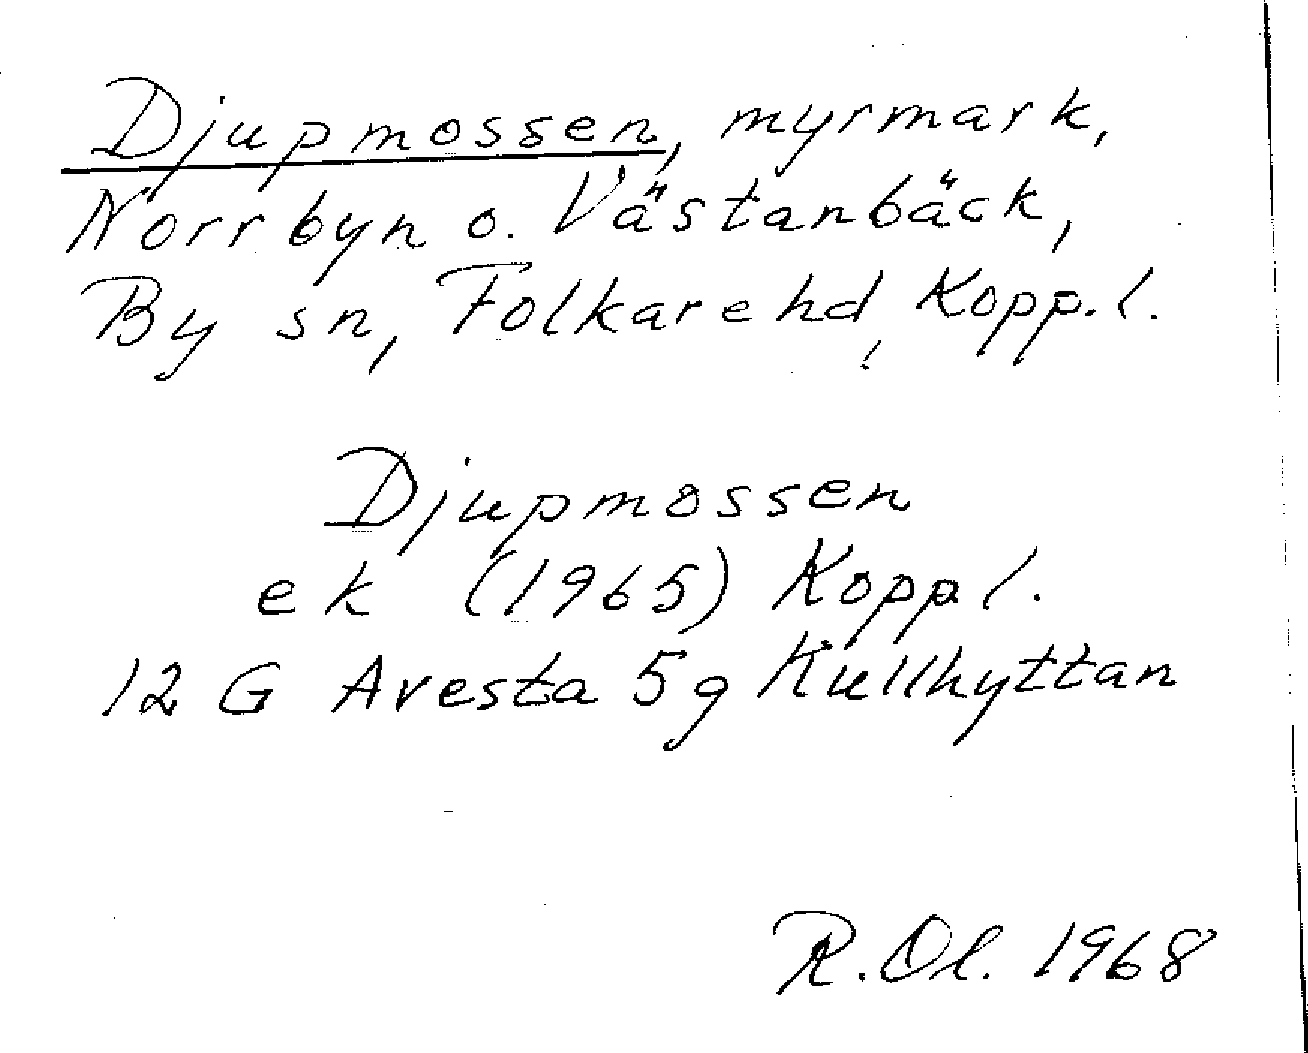 Djupmossen, myrmark,
Norrbyn o. Västanbäck,
By sn, Folkare hd, Kopp.l.
Djupmossen
ek (1965) Koppl.
12 G Avesta 5g Kullhyttan
R.Ol. 1968